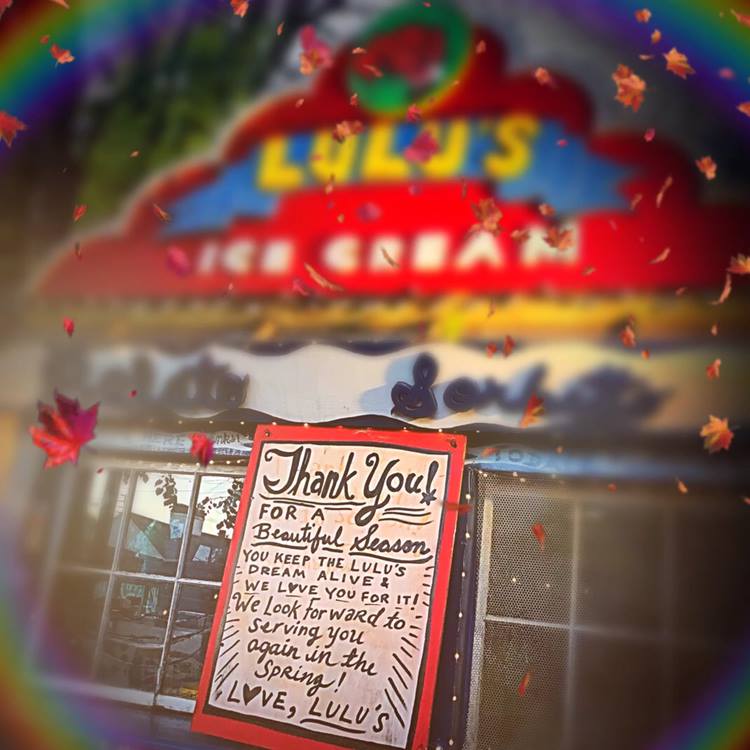 LULU'S
ICE CREAM
Thank You!
FOR A
Beautiful Season
YOU KEEP THE LULU'S
DREAM ALIVE &
WE L♥VE YOU FOR IT!
We Look forward to
serving you
again in the
Spring!
L♥VE, LULU'S